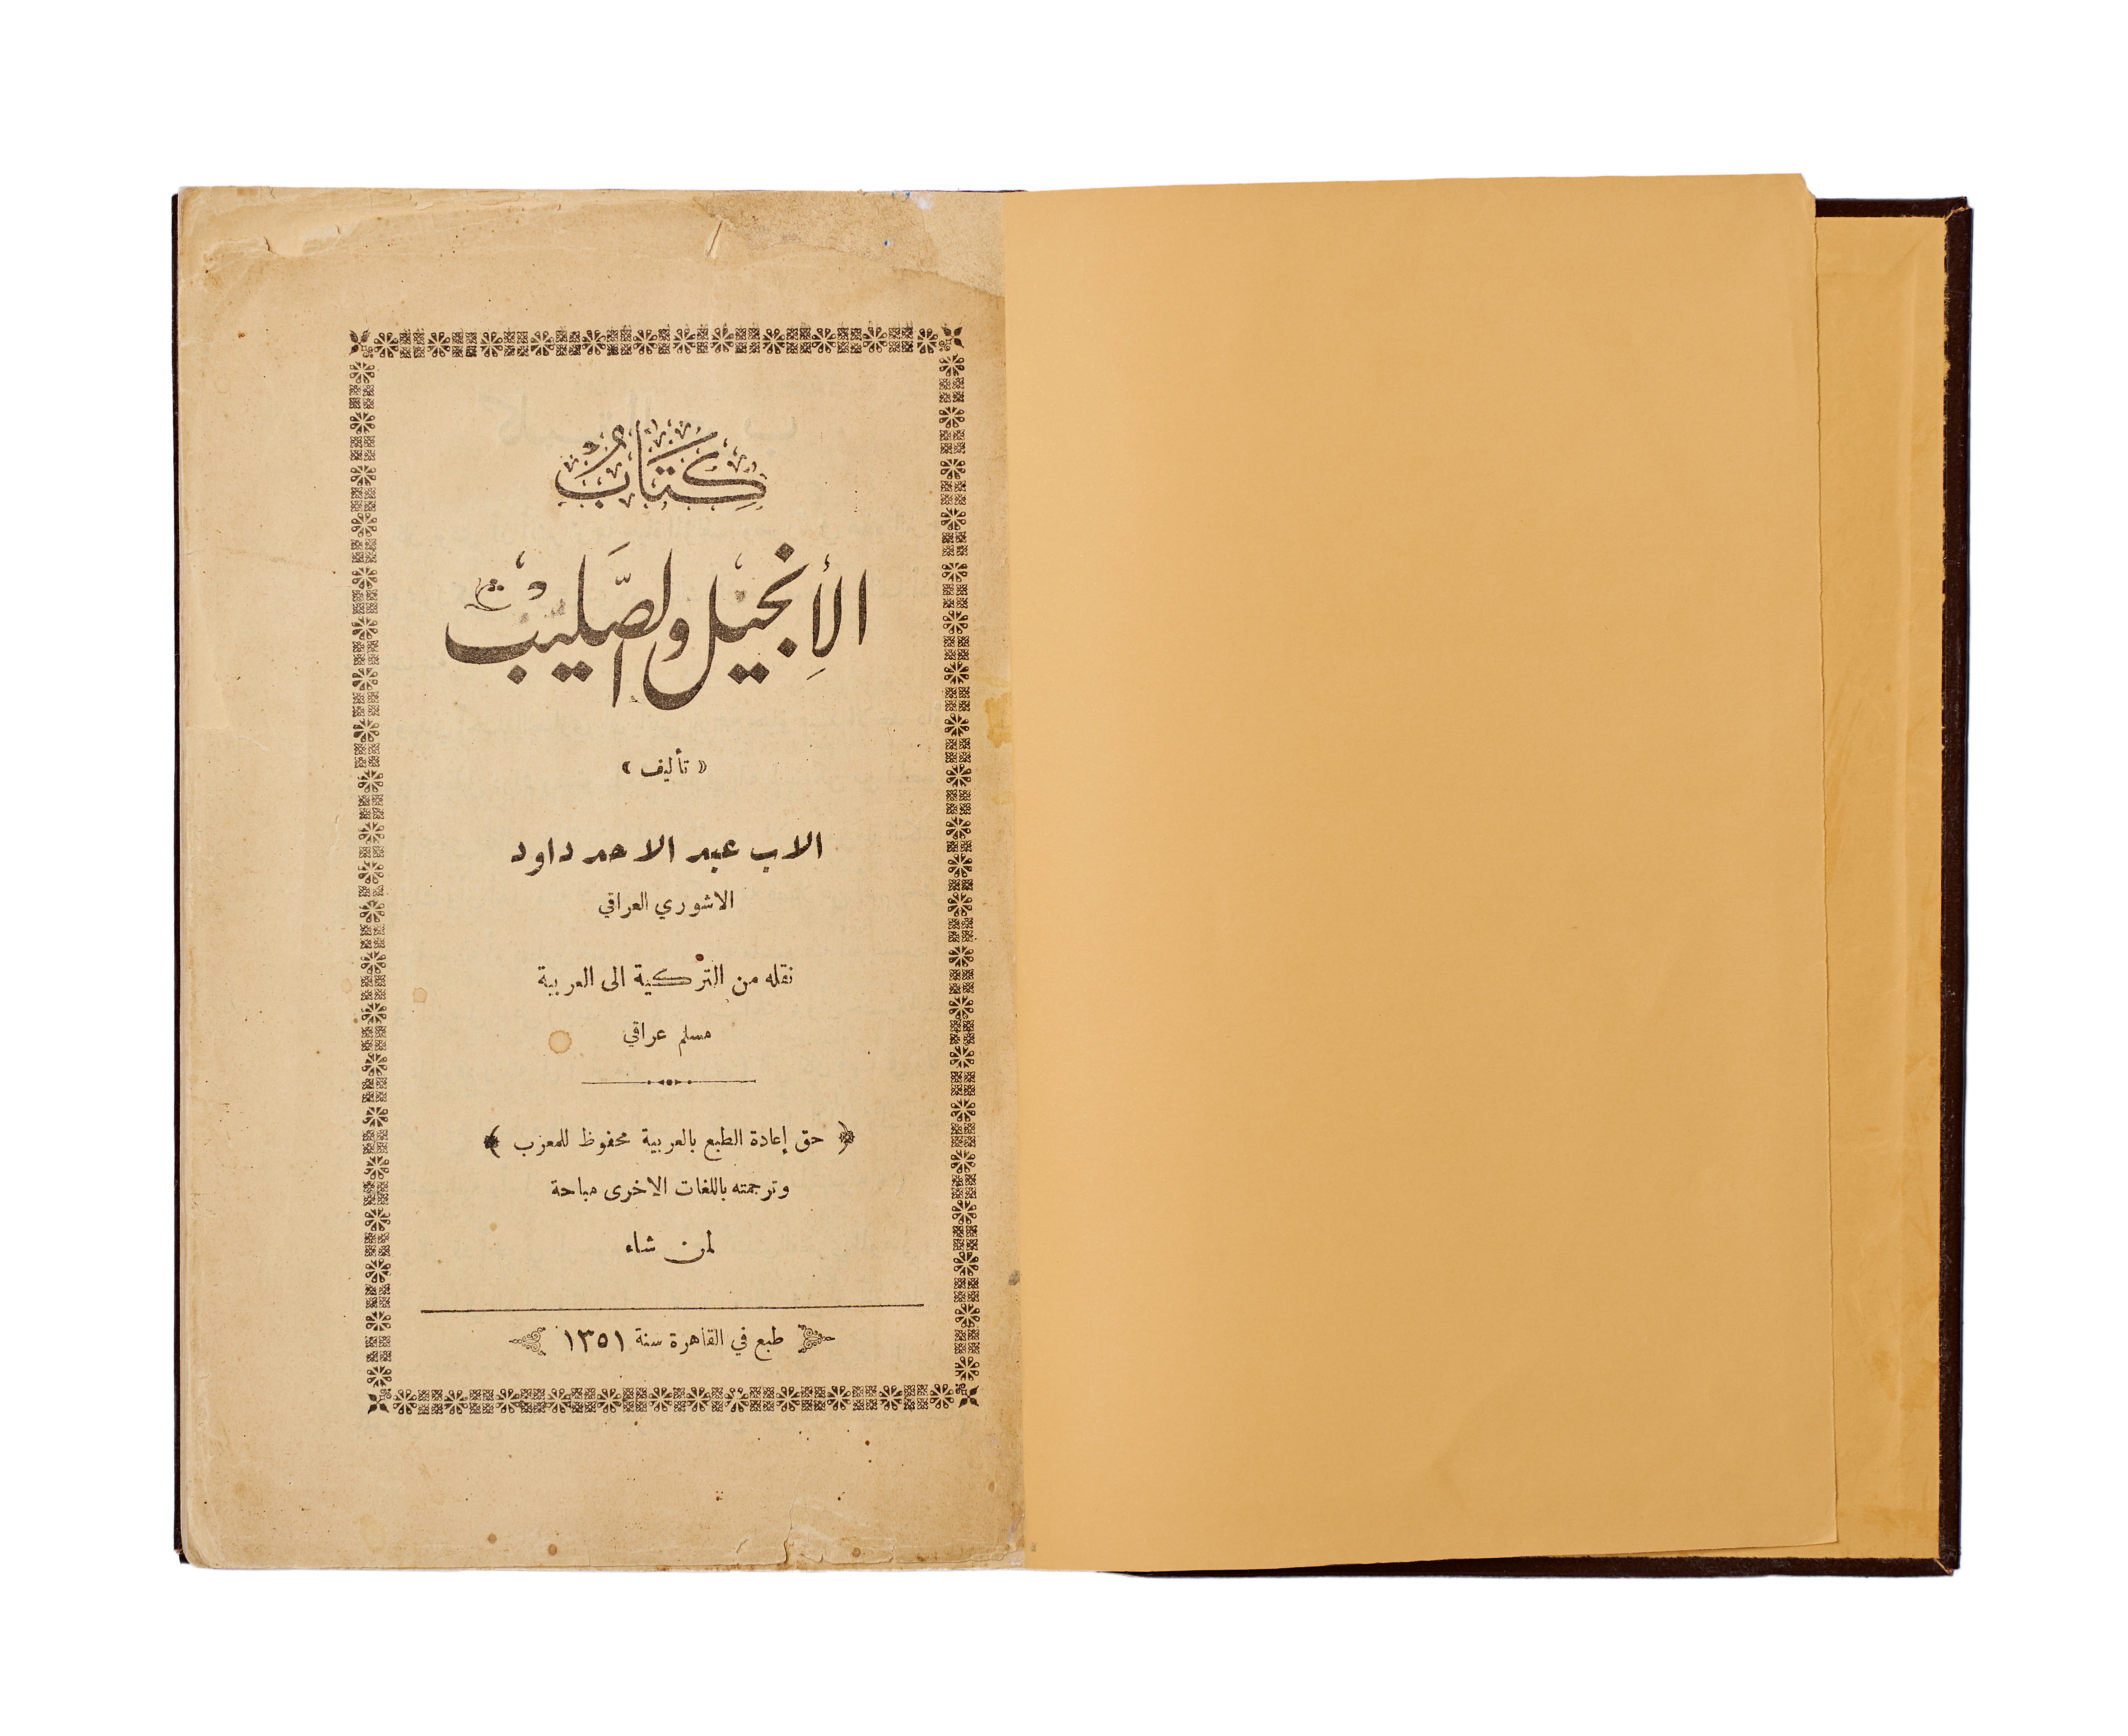 كتاب
الإنجيل والصليب
« تأليف »
الاب عبد الاحد داود
الاشوري العراقي
نقله من التركية الى العربية
مسلم عراقي
﴿ حق إعادة الطبع بالعربية محفوظ للمعرب ﴾
وترجمته باللغات الاخرى مباحة
لمن شاء
طبع في القاهرة سنة ١٣٥١